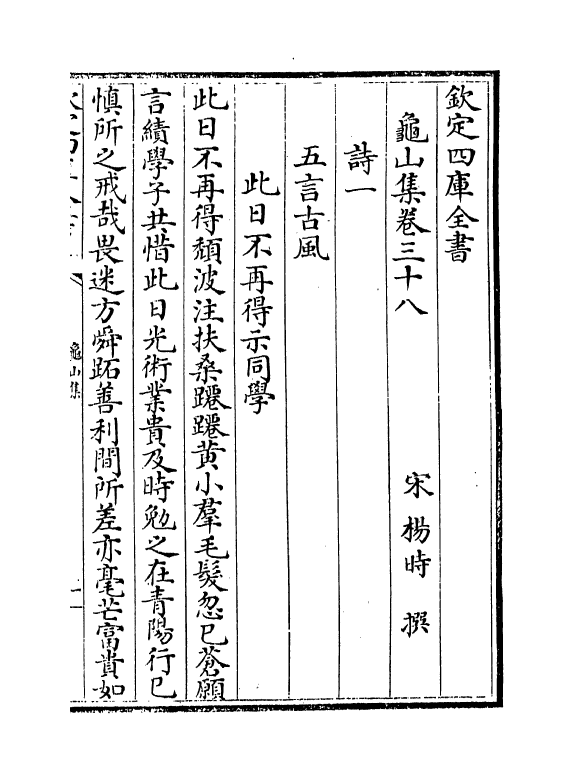 欽定四庫全書
龜山集卷三十八
宋 楊時 撰
詩一
五言古風
此日不再得示同學
此日不再得頹波注扶桑躚躚黄小羣毛髮忽已蒼願
言績學子共惜此日光術業貴及時勉之在青陽行已
慎所之戒哉畏迷方舜跖善利間所差亦毫芒富貴如
龜山集
一